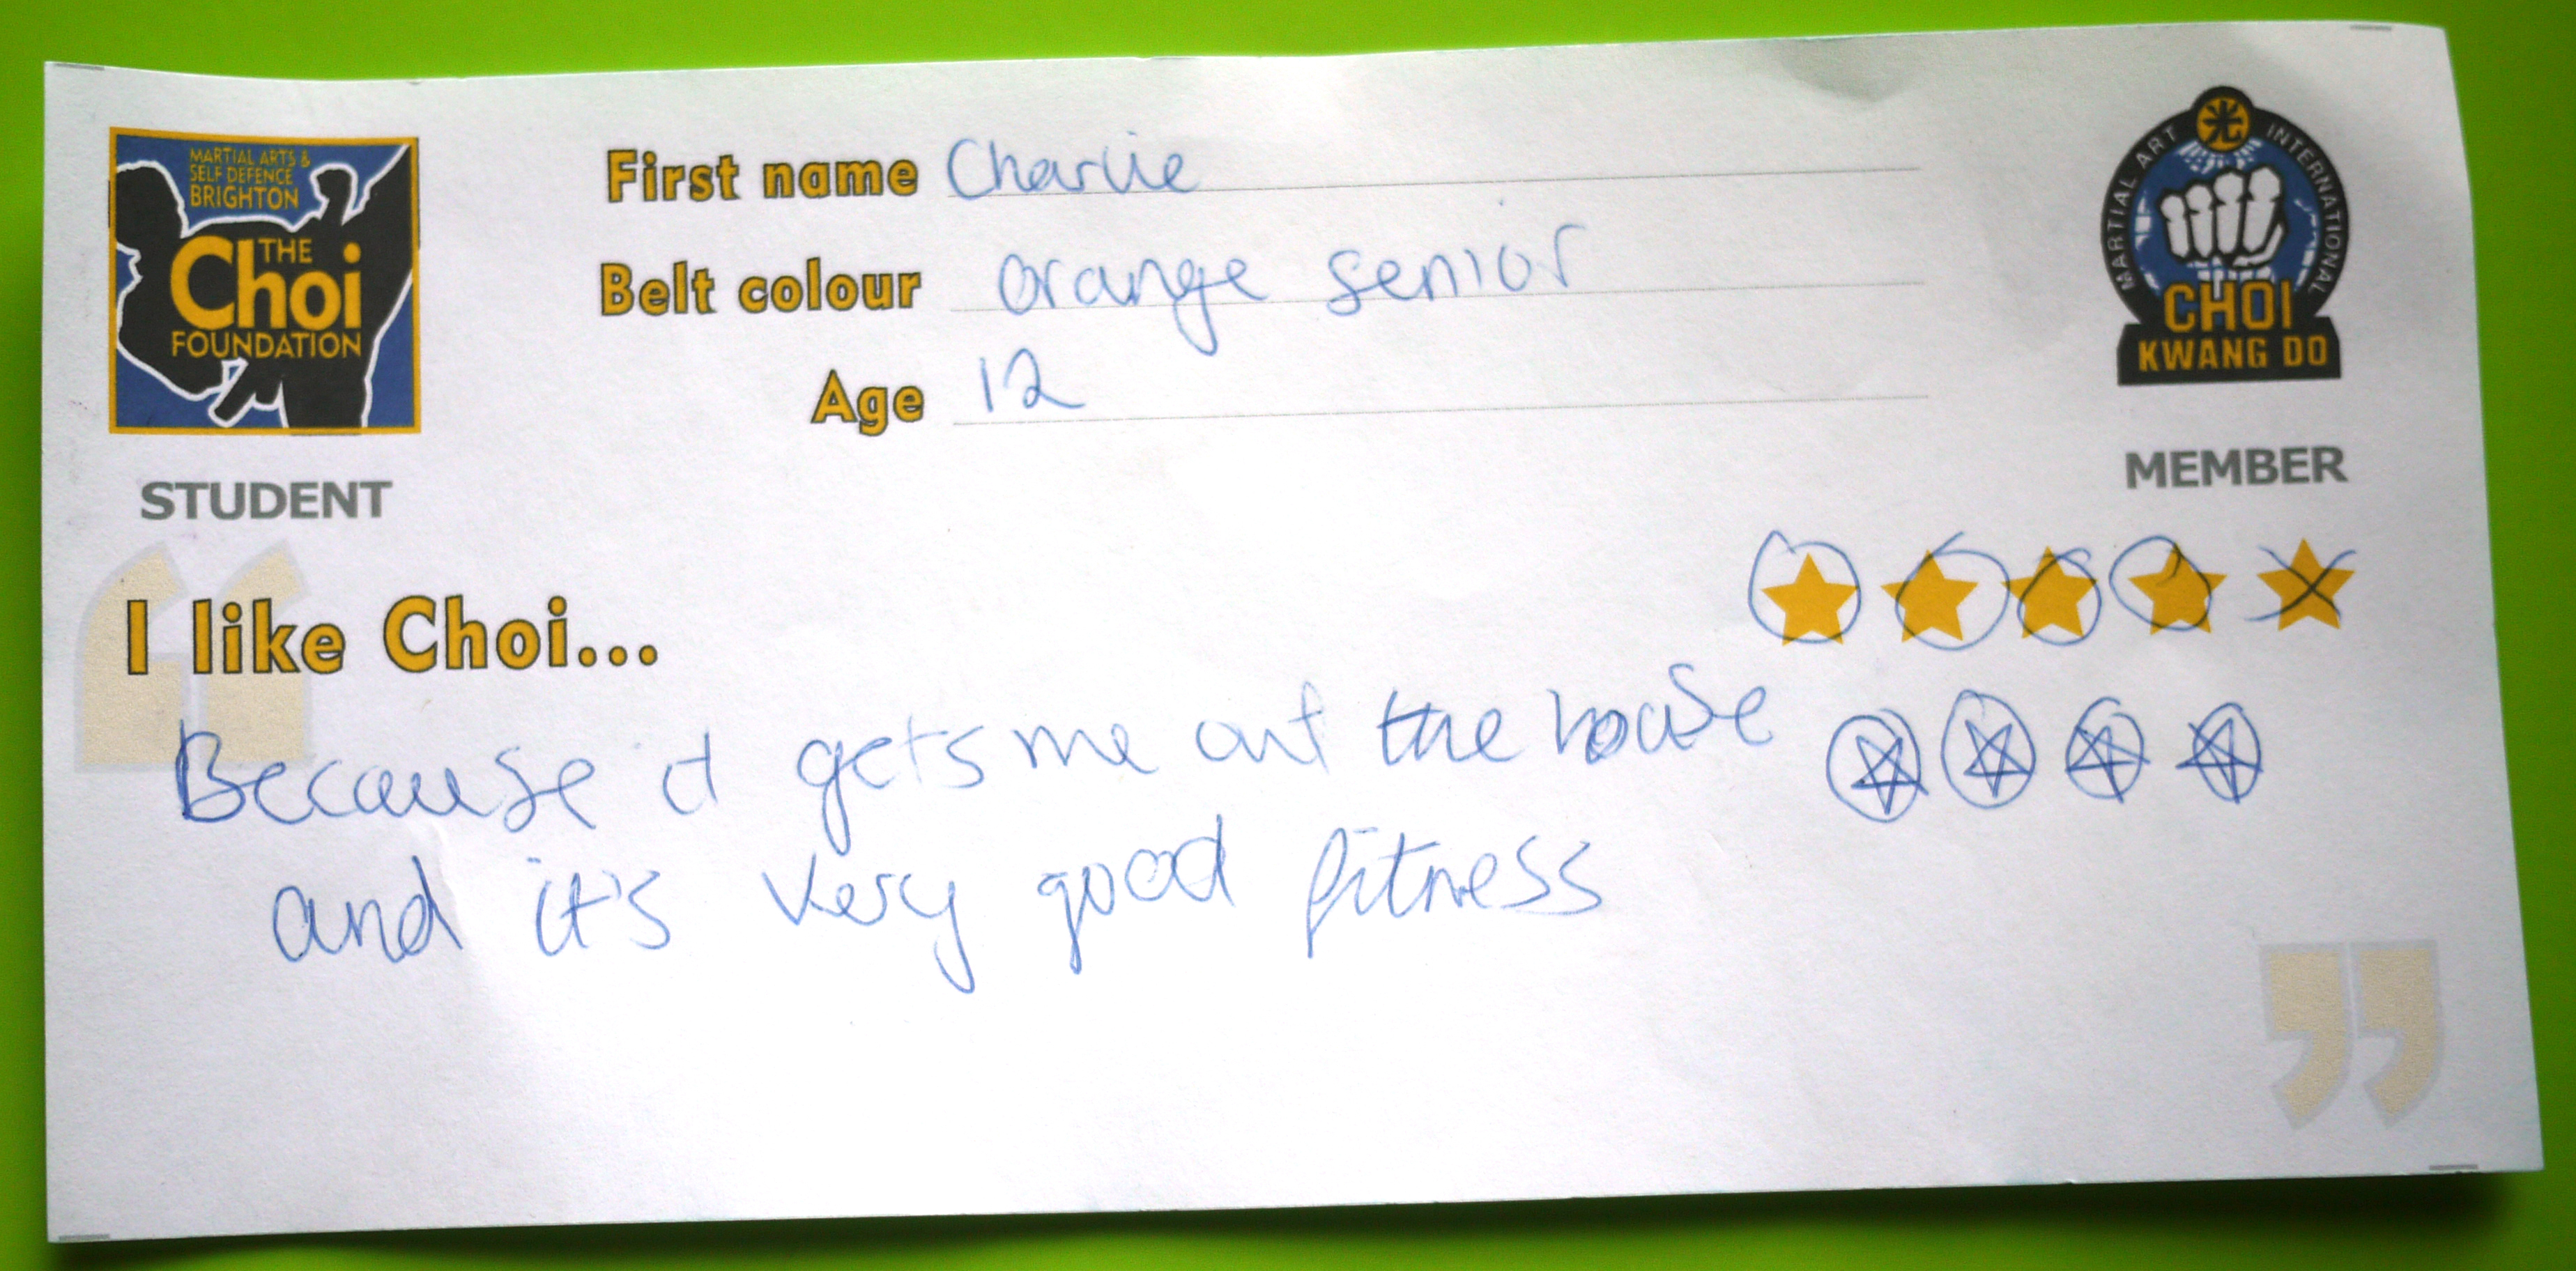 MARTIAL ARTS &
SELF DEFENCE
BRIGHTON
THE
Choi
FOUNDATION
STUDENT
First name Charlie
Belt colour orange senior
Age 12
MARTIAL ART INTERNATIONAL
光
CHOI
KWANG DO
MEMBER
“
I like Choi...
Because it gets me out the house
and it's very good fitness
”